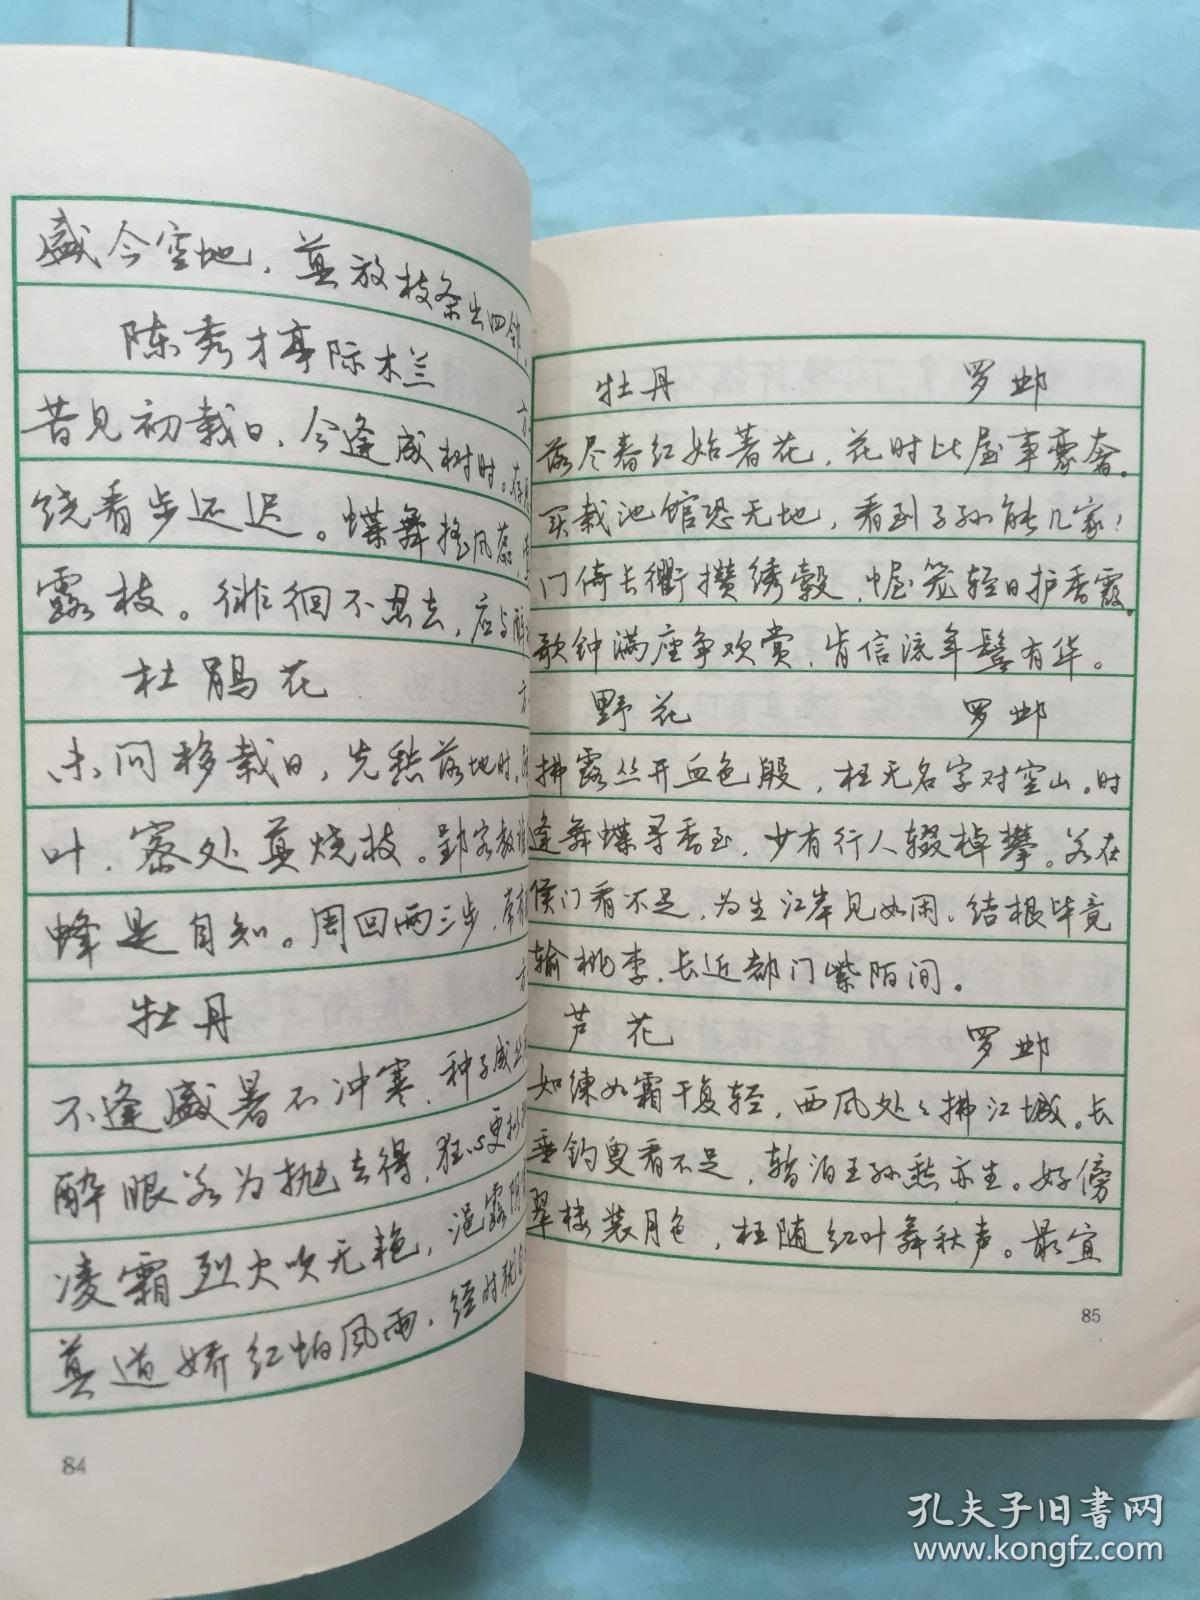 盛今空地，莫放枝条出四邻
陈秀才亭际木兰
昔见初栽日，今逢成树时。存
绕看步还迟。蝶舞摇风蕊，
露枝。徘徊不忍去，应与醉
方
杜鹃花
未问移栽日，先愁落地时。
叶，密处莫烧枝。郢客教
蜂是自知。周回两三步，常有
方
牡丹
不逢盛暑不冲寒，种子成丛
醉眼若为抛去得，狂心更拟
凌霜烈火吹无艳，浥露阴
莫道娇红怕风雨，经时犹
84
牡丹 罗邺
落尽春红始著花，花时比屋事豪奢。
买栽池馆恐无地，看到子孙能几家！
门倚长衢攒绣毂，幄笼轻日护香霞。
歌钟满座争欢赏，肯信流年鬓有华。
野花 罗邺
拂露丛开血色殷，枉无名字对空山。时
逢舞蝶寻香至，少有行人辍棹攀。若在
侯门看不足，为生江岸见如闲。结根毕竟
输桃李，长近都门紫陌间。
芦花 罗邺
如练如霜干复轻，西风处处拂江城。长
垂钓叟看不足，暂泊王孙愁亦生。好傍
翠楼装月色，枉随红叶舞秋声。最宜
85
孔夫子旧书网
www.kongfz.com